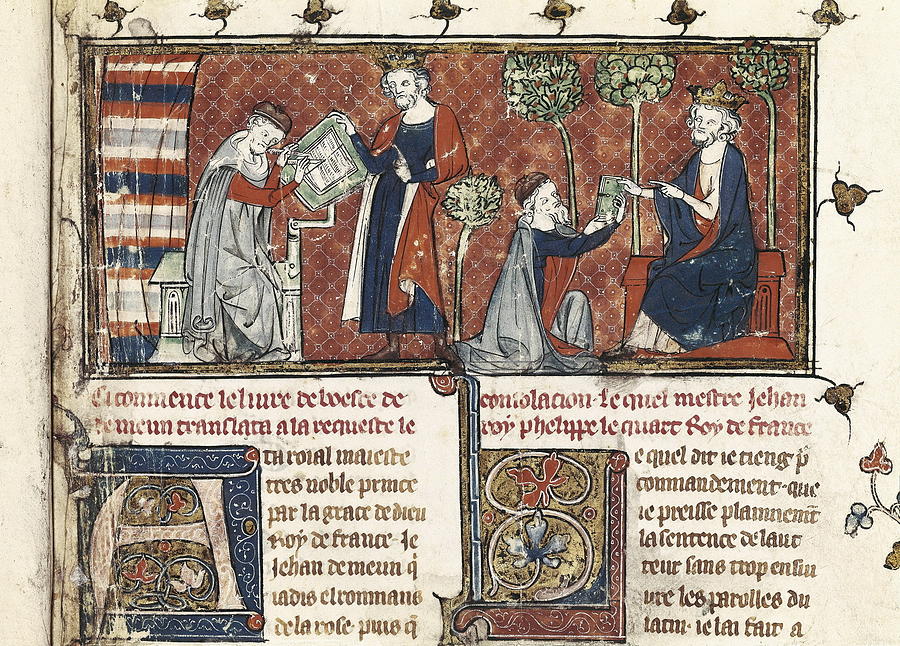 Ci commence le livre de boece de
consolacion. le quel mestre Jehan
de meun translata a la requeste le
roy phelippe le quart Roy de france
A ta roial maieste
tres noble prince
par la grace de dieu
Roy de france. Je
Jehan de meun q̄
iadis el rommans
de la rose. puis q̄
L e quel dit ie tieng p̄
commandement. que
ie preisse plainnement
la sentence de lauc
teur sans trop ensiu
ure les parolles du
latin. ie lai fait a